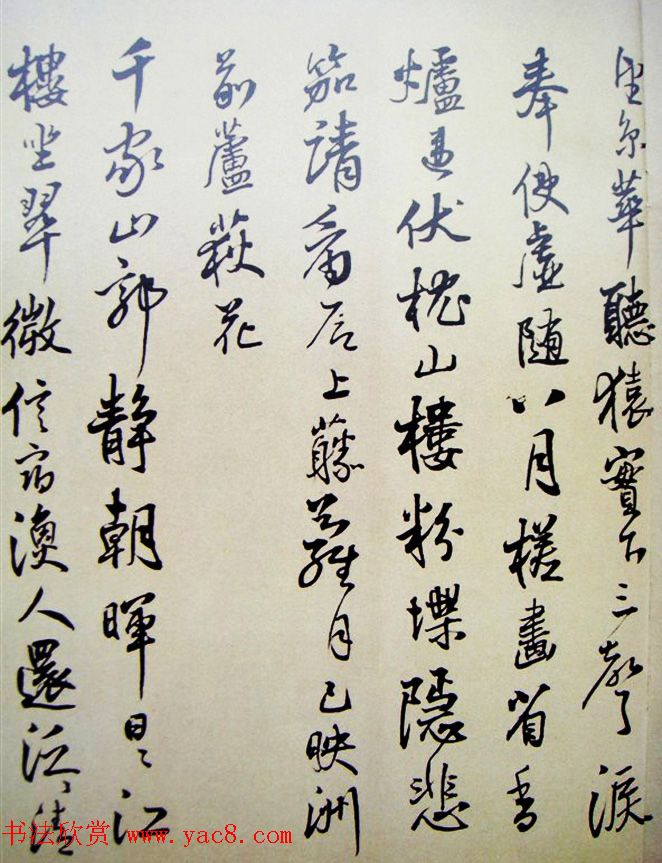 望京華聽猿實下三聲淚
奉使虛隨八月槎畫省香
爐違伏枕山樓粉堞隱悲
笳請看石上藤蘿月已映洲
前蘆荻花
千家山郭靜朝暉日日江
樓坐翠微信宿漁人還泛清
书法欣赏 www.yac8.com